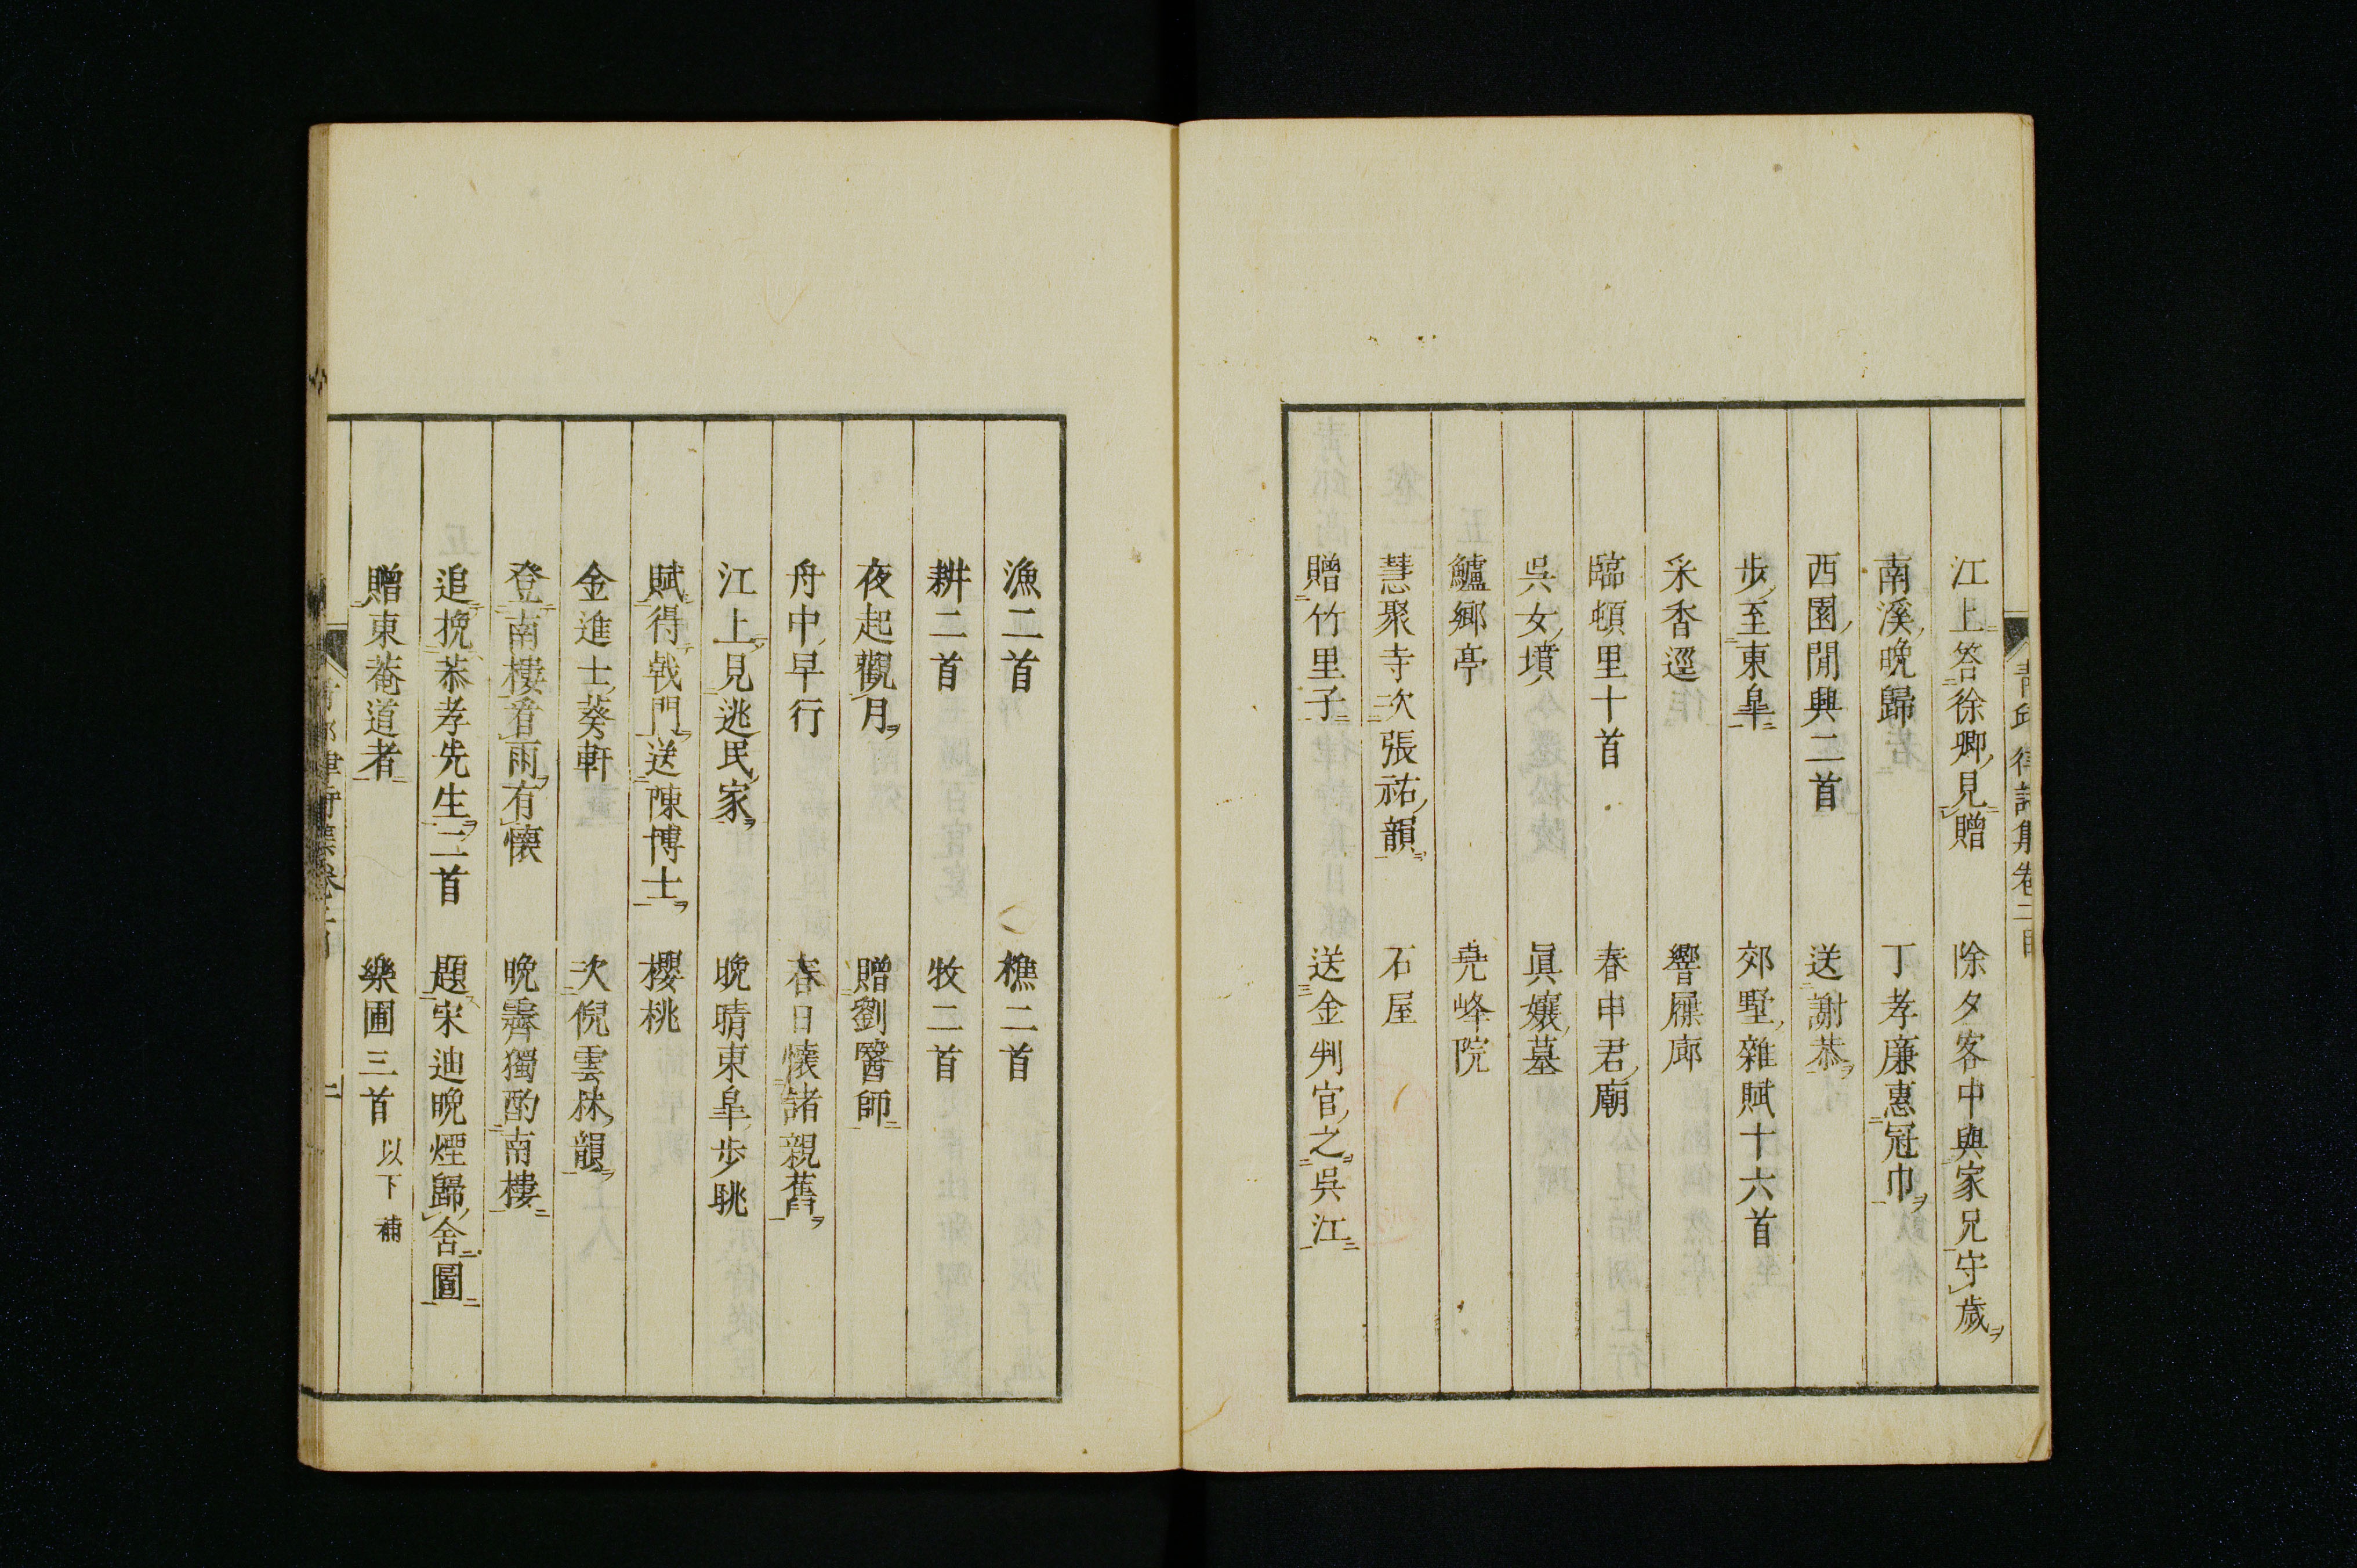 江上答徐卿見贈　除夕客中與家兄守歲
南溪晚歸　丁孝廉惠冠巾
西園閒興二首　送謝恭
步至東皐　郊墅雜賦十六首
采香逕　響屧廊
臨頓里十首　春申君廟
吳女墳　眞孃墓
鱸鄉亭　堯峰院
慧聚寺次張祐韻　石屋
贈竹里子　送金判官之吳江
漁二首　樵二首
耕二首　牧二首
夜起觀月　贈劉醫師
舟中早行　春日懷諸親舊
江上見逃民家　晚晴東皐步眺
賦得戟門送陳博士　櫻桃
金進士葵軒　次倪雲林韻
登南樓看雨有懷　晚霽獨酌南樓
追挽恭孝先生二首　題宋迪晚煙歸舍圖
贈東菴道者　樂圃三首 以下補